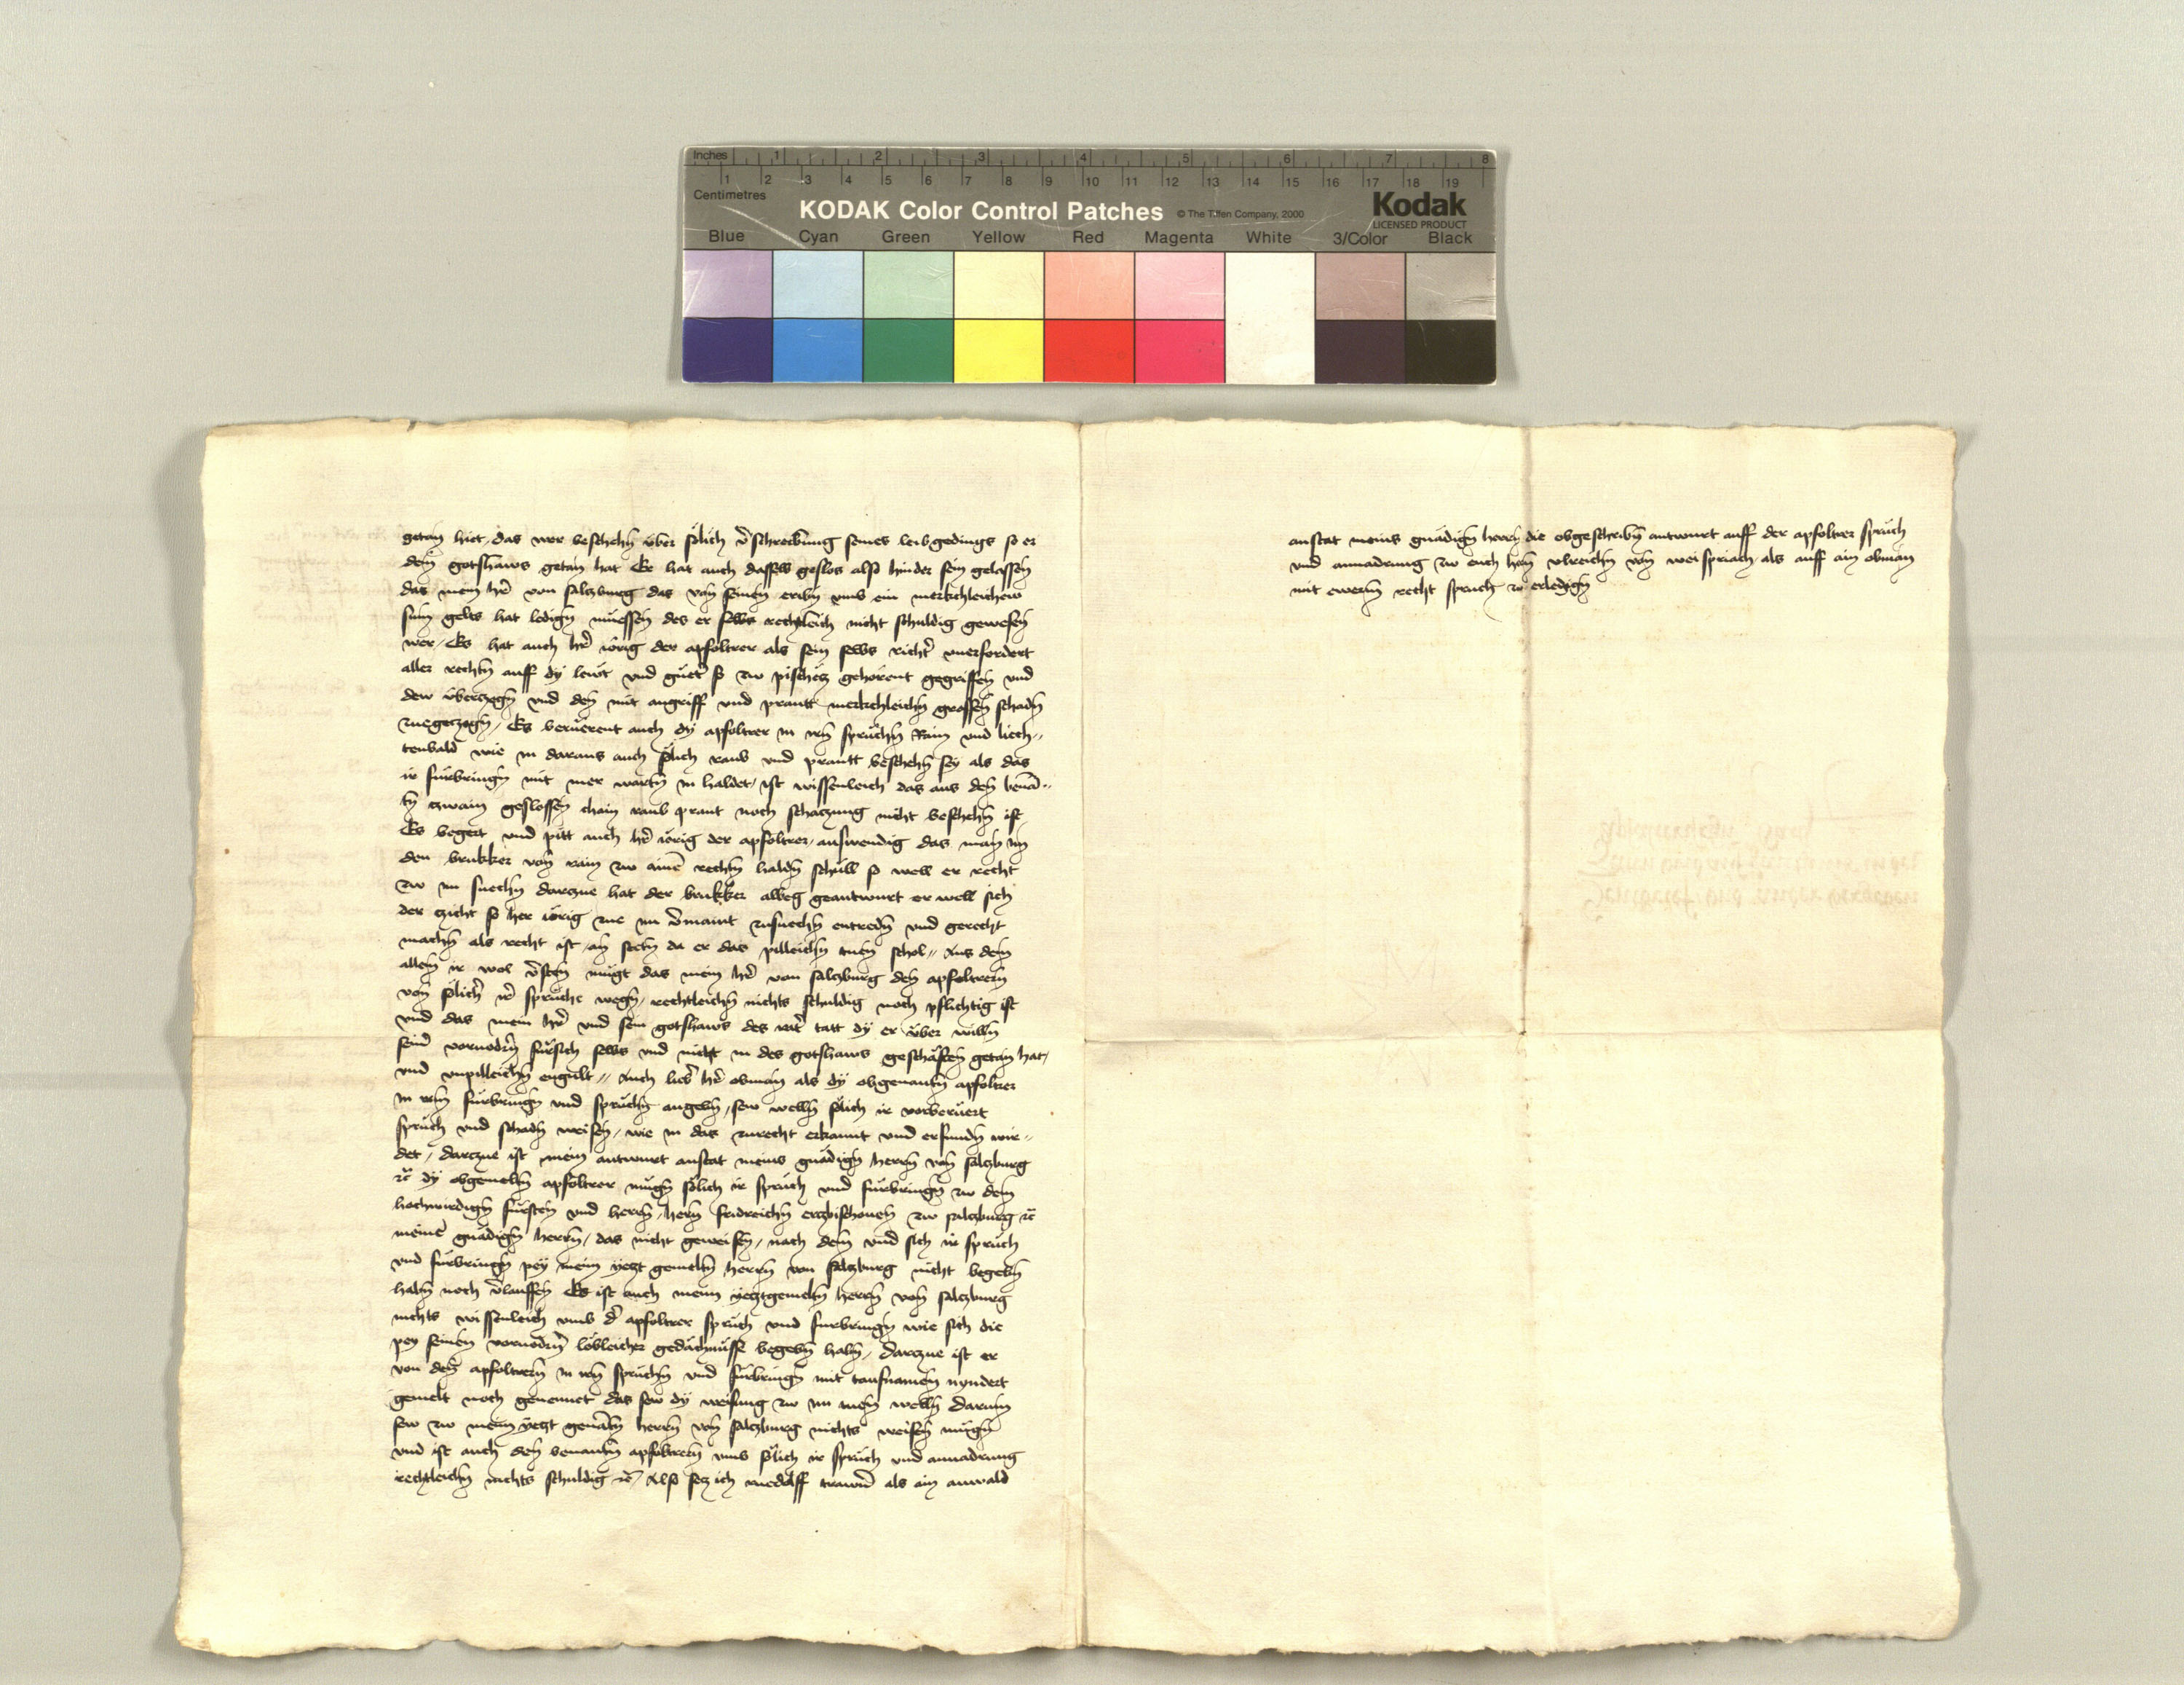 Inches 1 2 3 4 5 6 7 8
1 2 3 4 5 6 7 8 9 10 11 12 13 14 15 16 17 18 19
Centimetres
KODAK Color Control Patches © The Tiffen Company, 2000
Kodak
LICENSED PRODUCT
Blue Cyan Green Yellow Red Magenta White 3/Color Black
getan hiet das wer beschehn vber sölich v̄schreibung seines leibgedings so er
dem gotshaws getan hat Er hat auch dasselb geslos also hinder sein gelassen
das mein h̄r von salczburg das von seinen erbn vmb ein merkchleichew
sum gelts hat ledign müessen des er selbs rechtleich nicht schuldig gewesen
wer / Es hat auch h̄r iörig der apfoltrer als sein selbs richt̄ vneruordert
aller rechtn auff dy lewt vnd güet̄ so zw pischecz gehörent gegriffen vnd
dew überczogn vnd den mit angriff vnd prantt merkchleichn grossen schadn
zuegeczogn / Es berüerent auch dÿ apfoltrer in irn sprüchn Rain vnd liech //
tenbald wie in daraus auch sölich raub vnd prantt beschehn sey als das
ir fürbringn mit mer wartn in haldet / ist wissenleich das aus den benā //
tn zwain geslossen chain raub prant noch schaczung nicht beschehn ist
Es begert vnd pitt auch h̄r iörig der apfoltrer / auswendig das man im
den brukker von rain zw ainē rechtn haldn schüll so well er recht
zw im suechn darczue hat der brukker albeg geantwurt er well sich
der czicht so her iörig zue im v̄maint zusuechn entredn vnd gerecht
machn als recht ist / an stetn da er das pilleichn tuen schol // Aus dem
allem ir wol v̄sten mügt das mein h̄r von salczburg den apfoltrern
von sölich̄ ir̄ sprüche wegn / rechtleichn nichts schuldig noch pflichtig ist
vnd das mein h̄r vnd sein gotshaws des tatt dy er über willn
seind̄ voruodrn fürsich selbs vnd nicht in des gotshaws geschäften getan hat /
vnd vnpilleichn engült // Auch lieb̄ h̄r obman als dÿ obgenantn apfoltrer
in irn fürbringn vnd sprüchn angebn / sew welln sölich ir vorberüert
sprüch vnd schadn weisen / wie in das zurecht erkannt vnd erfundn wir //
det / darczue ist mein antwurt anstat meins gnädign herrn von salczburg
rc̄ dÿ obgemeltn apfoltrer mügn sölich ir sprüch vnd fürbringn zw dem
hochwirdign fürsten vnd herrn / hern fridreichn erczbischouen zw salczburg rc̄
meinē gnädign herrn / das nicht geweisen / nach dem vnd sich ir sprüch
vnd fürbringn pey meim yeczt gemeltn herrn von salczburg nicht begebn
habn noch v̄lauffen Es ist auch meim yecztgemeltn herrn von salczburg
nichts wissenleich vmb d̄ apfoltrer sprüch vnd fürbringn wie sich die
pey seinen voruodrn löbleicher gedächnüss begebn habn / Darczue ist er
von den apfoltrern in irn sprüchn vnd fürbringn mit taufnamen nyndert
gemelt noch genennet das sew dÿ weisung zw im tuen welln Darum
sew zw meim yeczt genātn herrn von salczburg nichts weisen mügn
vnd ist auch den benantn apfoltrern vmb sölich ir sprüch vnd anuadrung
rechtleichn nichts schuldig rc̄ / Also secz ich ruedolff als ain anwald
anstat meins gnädign herrn die obgeschribn antwurt auff der apfoltrer sprüch
vnd anuadrung zw euch hern vlreichn von weispriach als auff ain obman
mit ewerm recht spruch zu erledign